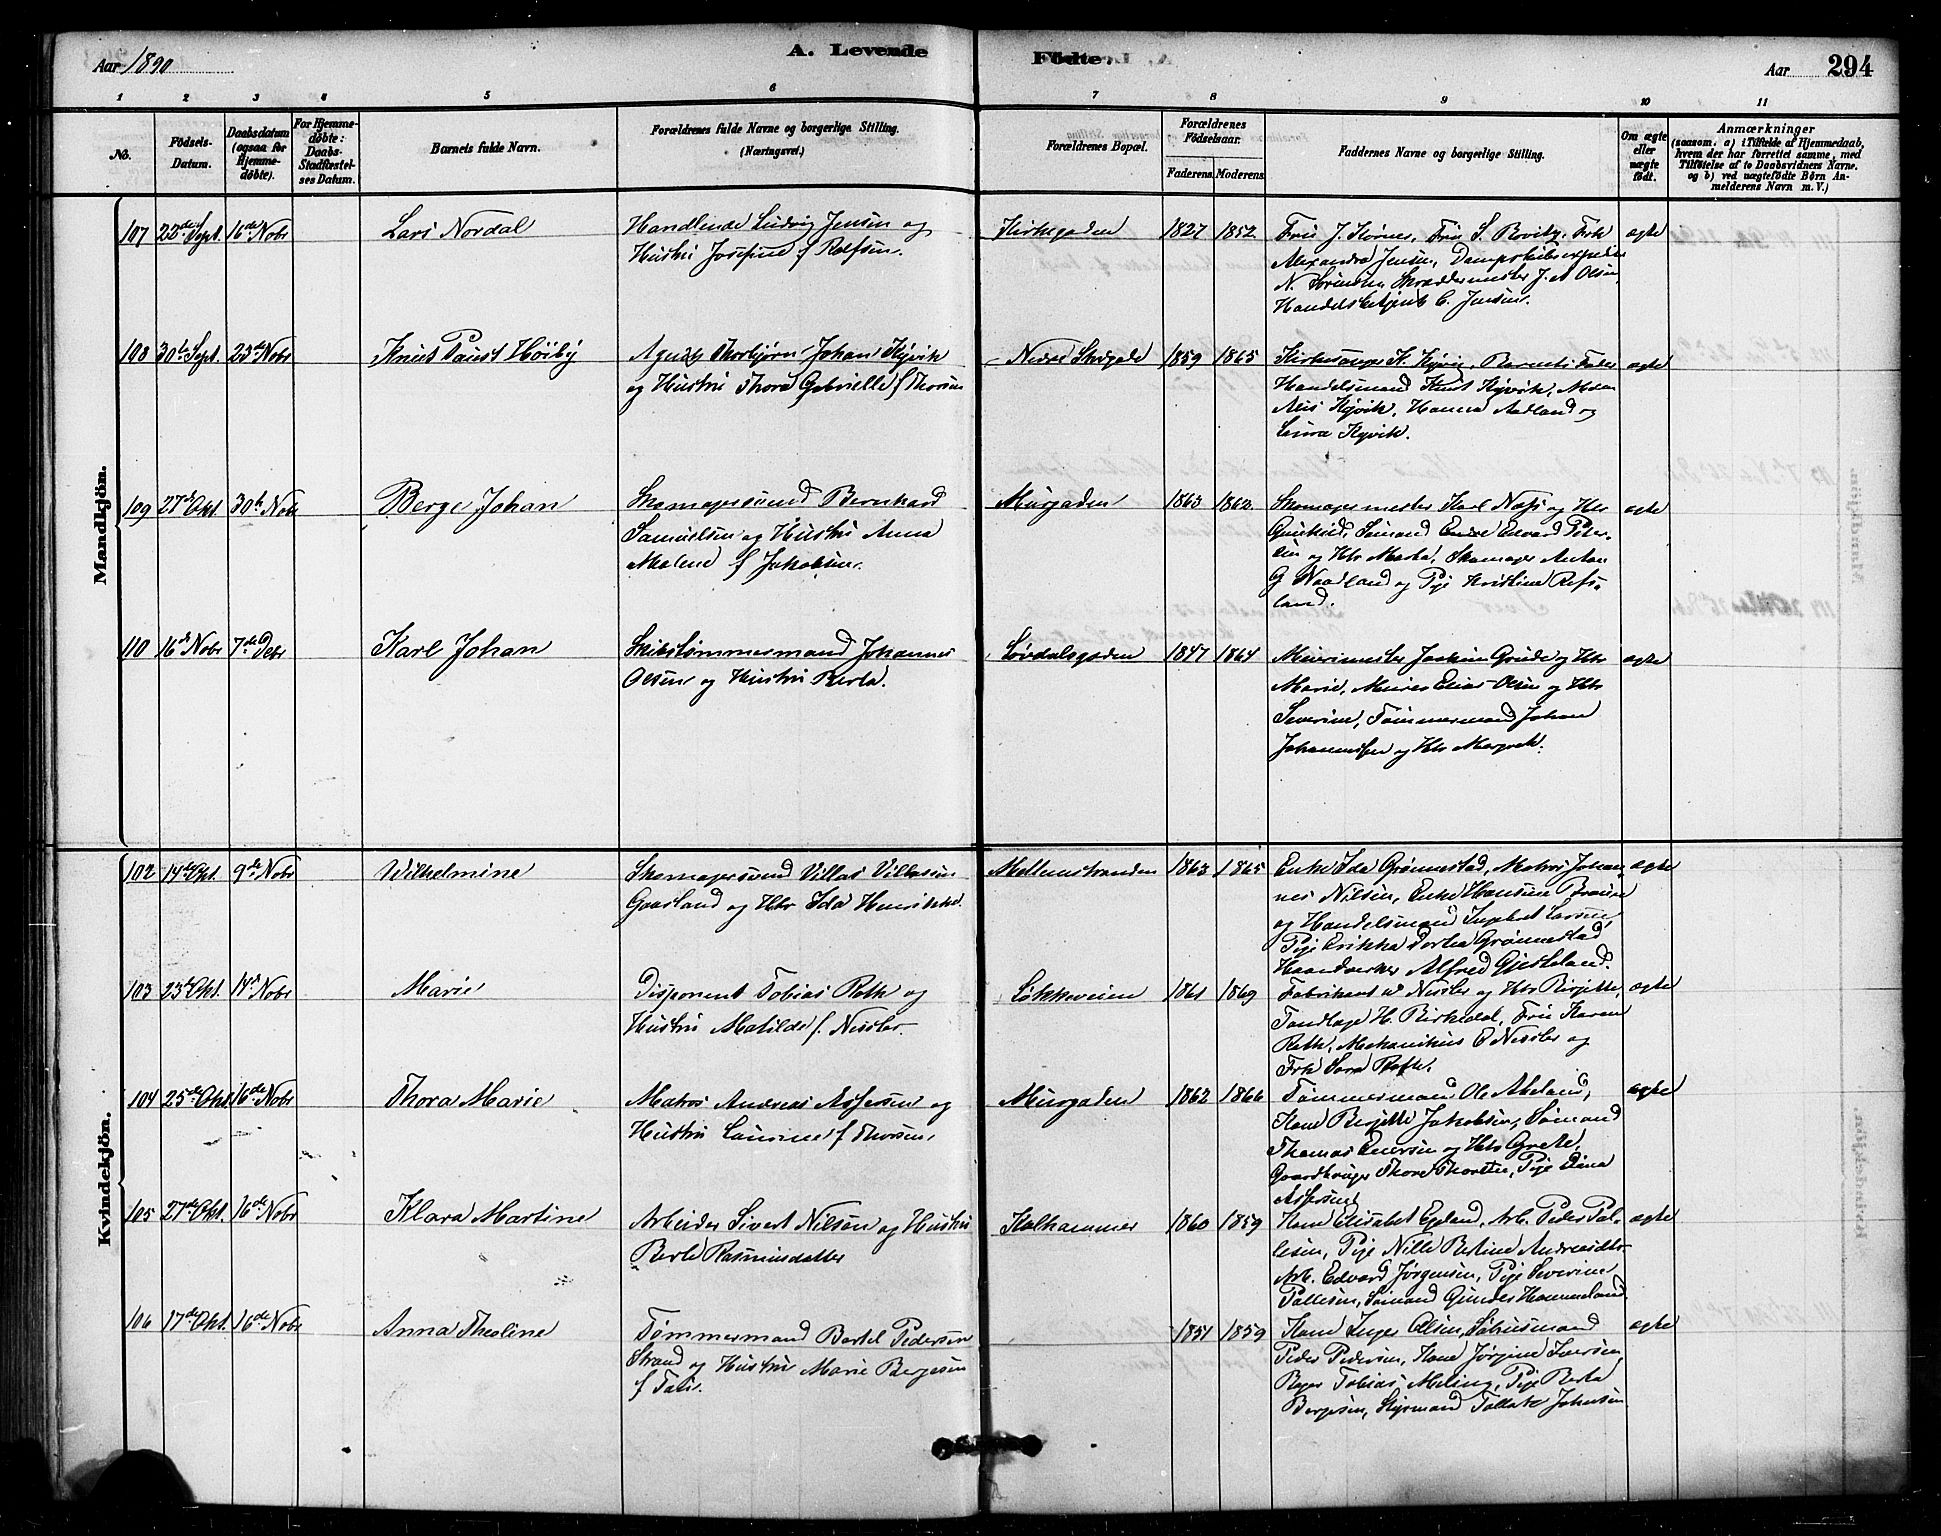 Aar 1890
A. Levende
Födte.
Aar 294
1 2 3 4 5 6 7 8 9 10 11
No.
Födsels-
Datum.
Daabsdatum
(ogsaa for
Hjemme-
døbte).
For Hjemme-
døbte:
Daabs-
Stadfæstel-
ses Datum.
Barnets fulde Navn.
Forældrenes fulde Navne og borgerlige Stilling.
(Næringsvei.)
Forældrenes Bopæl.
Forældrenes
Födselsaar.
Faderens. Moderens.
Faddernes Navne og borgerlige Stilling.
Om ægte
eller
uægte
födt.
Anmærkninger
(saasom: a) i Tilfælde af Hjemmedaab,
hvem der har forrettet samme, med
Tilföielse af to Daabsvidners Navne.
og b) ved uægtefödte Börn An-
melderens Navn m. V.)
Mandkjön.
107 22de Sept. 16de Nobr
Lars Nordal
Handlende Ludvig Jensen og
Hustru Josefine f Rolfsen.
Kirkegaden 1827 1852
Fru J. Körner, Fru S. Rovity. Frk
Alexandra Jensen, Dampskibsexpeditör
N. Sörensen, Skræddermester J. A Olsen,
Handelsbetjent C. Jensen.
ægte
108 30te Sept. 23de Nobr
Knut Paust Höiby
Agent Thorbjörn Johan Kyvik
og Hustru Thora Gabrielle f Thorsen
Nedre Skidgade 1859 1865
Kirkesanger K. Kyvik, Barnets Fader
Handelsmand Knut Kyvik, Mdm
Kyvik, Hanna Aadland og
Laura Kyvik.
ægte
109 27de Okt 30te Nobr
Berge Johan
Skomagersvend Bernhard
Samuelsen og Hustru Anna
Malene f Jakobsen.
Murgaden 1863 1862
Skomagermester Karl Næss og Htr
Gurine, Sömand Endre Edvard Peter-
sen og Htr Marta, Skomager Anton
G Naadland og Pige Kristine Refs-
land.
ægte
110 16de Nobr 7de Debr
Karl Johan
Skibstömmermand Johannes
Olsen og Hustru Berta.
Lövdalsgaden 1847 1864
Meierimester Joakim Grude og Htr
Marie, Murer Elias Olsen og Htr
Severine, Tömmermand Johan
Johannessen og Htr Margrete.
ægte
Kvindekjön.
102 14de Spt. 9de Nobr
Wilhelmine
Skomagersvend Villas Villassen
Gaasland og Htr Ida Henrikke.
Mellemstranden 1863 1865
Enke Ida Grönnestad, Matros Johan-
nes Nilsen, Enke Hansine Braun
og Handelsmand Ingebret Larsen,
Pige Erikka Dortea Grönnestad,
Haandværker Alfred Gjesteland.
ægte
103 23de Okt. 14de Nobr
Marie
Disponent Tobias Roth og
Hustru Matilde f. Nessler
Lökkeveien 1861 1869
Fabrikant W Nessler og Htr Birgitte,
Tandlæge H. Birkedal, Fru Karen
Roth, Mekanikus E Nessler og
Frk Sara Roth.
ægte
104 25de Okt. 16de Nobr
Thora Marie
Matros Andreas Assersen og
Hustru Laurine f Thorsen,
Murgaden 1862 1866
Tömmermand Ole Abeland,
Kone Birgitte Jakobsen, Sömand
Thomas Enersen og Htr Grete,
Gaardbruger Thore Thorsen, Pige Dina
Assersen
ægte
105 27de Okt. 16de Nobr
Klara Martine
Arbeider Sivert Nilsen og Hustru
Berte Rasmusdatter
Kalhammer 1860 1859
Kone Elisabet Egeland, Arb. Peder Pal-
lesen, Pige Nille Bertine Andreasdtr
Arb. Edvard Jörgensen, Pige Severine
Pallesen, Sömand Hammeland
ægte
106 17de Okt. 16de Nobr
Anna Theoline
Tömmermand Bertel Pedersen
Strand og Hustru Marie Bergesen
f Tau.
1851 1859
Kone Inger Olsen, Söhusmand
Peder Pedersen, Kone Jörgine Iversen,
Bager Tobias Meling, Pige Berta
Bergesen, Styrmand Tollak Johnsen
ægte